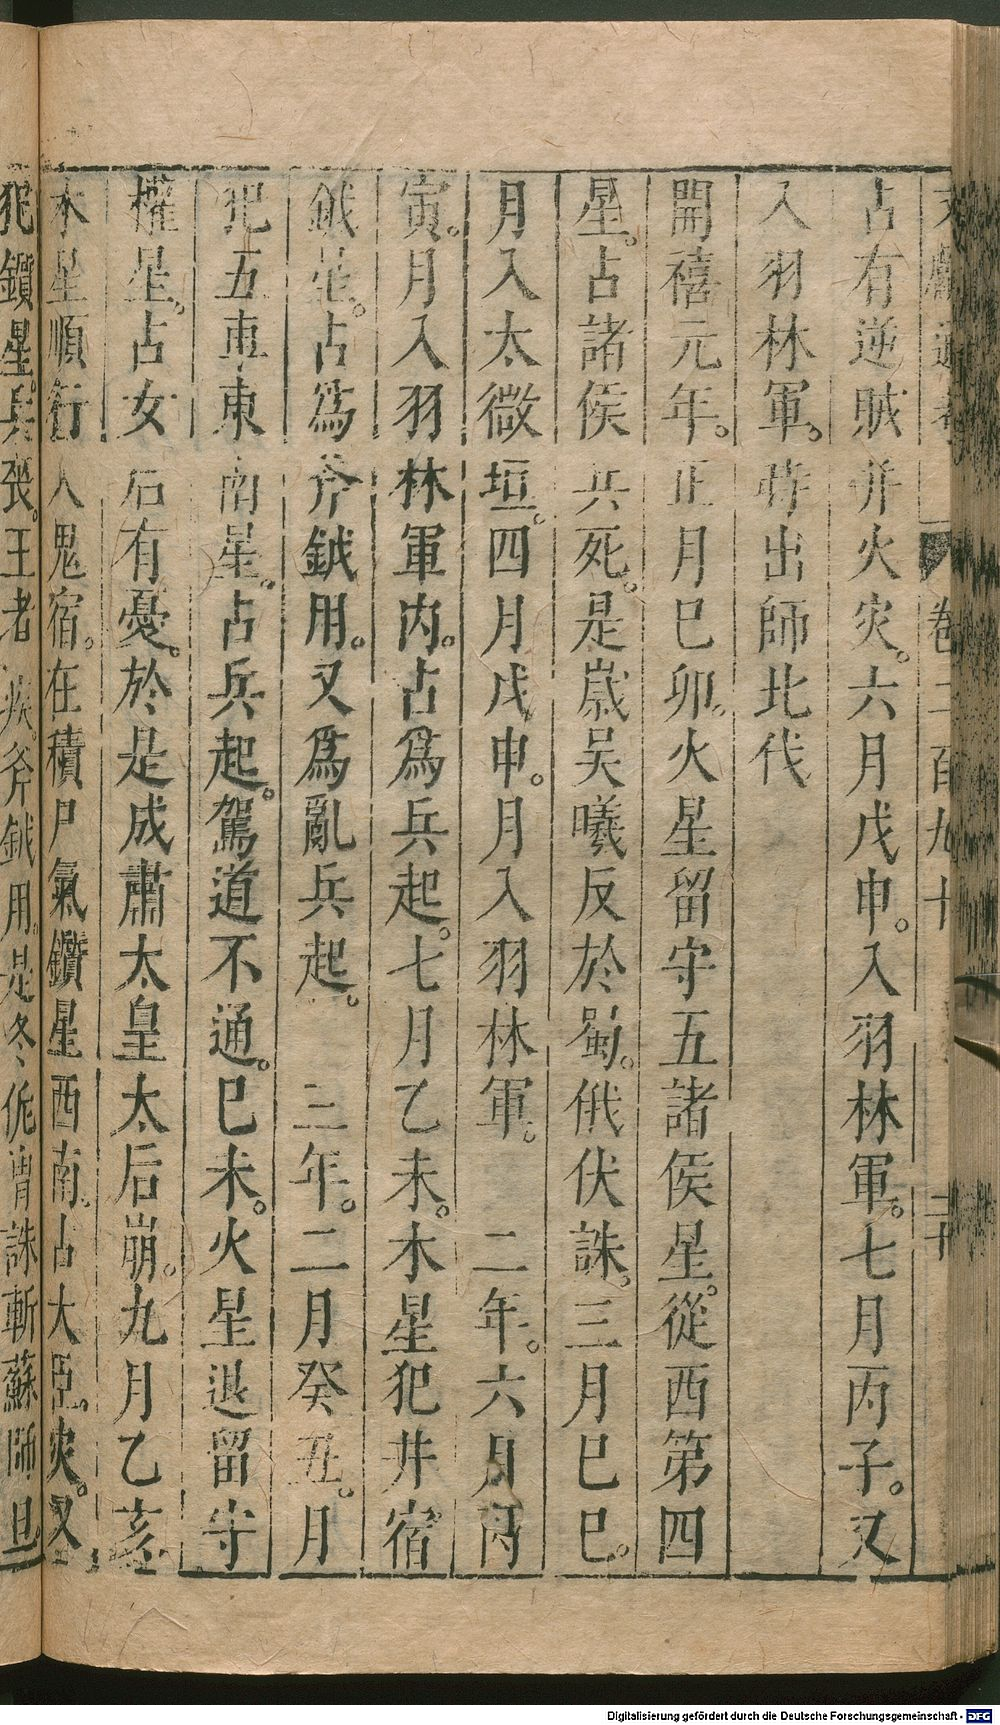 文獻通考 卷二百九十 二十
占有逆賊并火災。六月戊申。入羽林軍。七月丙子。又
入羽林軍。時出師北伐
開禧元年。正月巳卯。火星留守五諸侯星。從西第四
星。占諸侯兵死。是歲吴曦反於蜀。俄伏誅。三月巳巳。
月入太微垣。四月戊申。月入羽林軍。 二年。六月丙
寅。月入羽林軍内。占爲兵起。七月乙未。木星犯井宿
鉞星。占爲斧鉞用。又爲亂兵起。 三年。二月癸丑。月
犯五車東南星。占兵起。駕道不通。巳未。火星退留守
權星。占女后有憂。於是成肅太皇太后崩。九月乙亥
木星順行入鬼宿。在積尸氣鑽星西南。占大臣災。又
犯鑕星。兵張。王者疾。斧鉞用。是冬侂冑誅斬蘇師旦
Digitalisierung gefördert durch die Deutsche Forschungsgemeinschaft - DFG